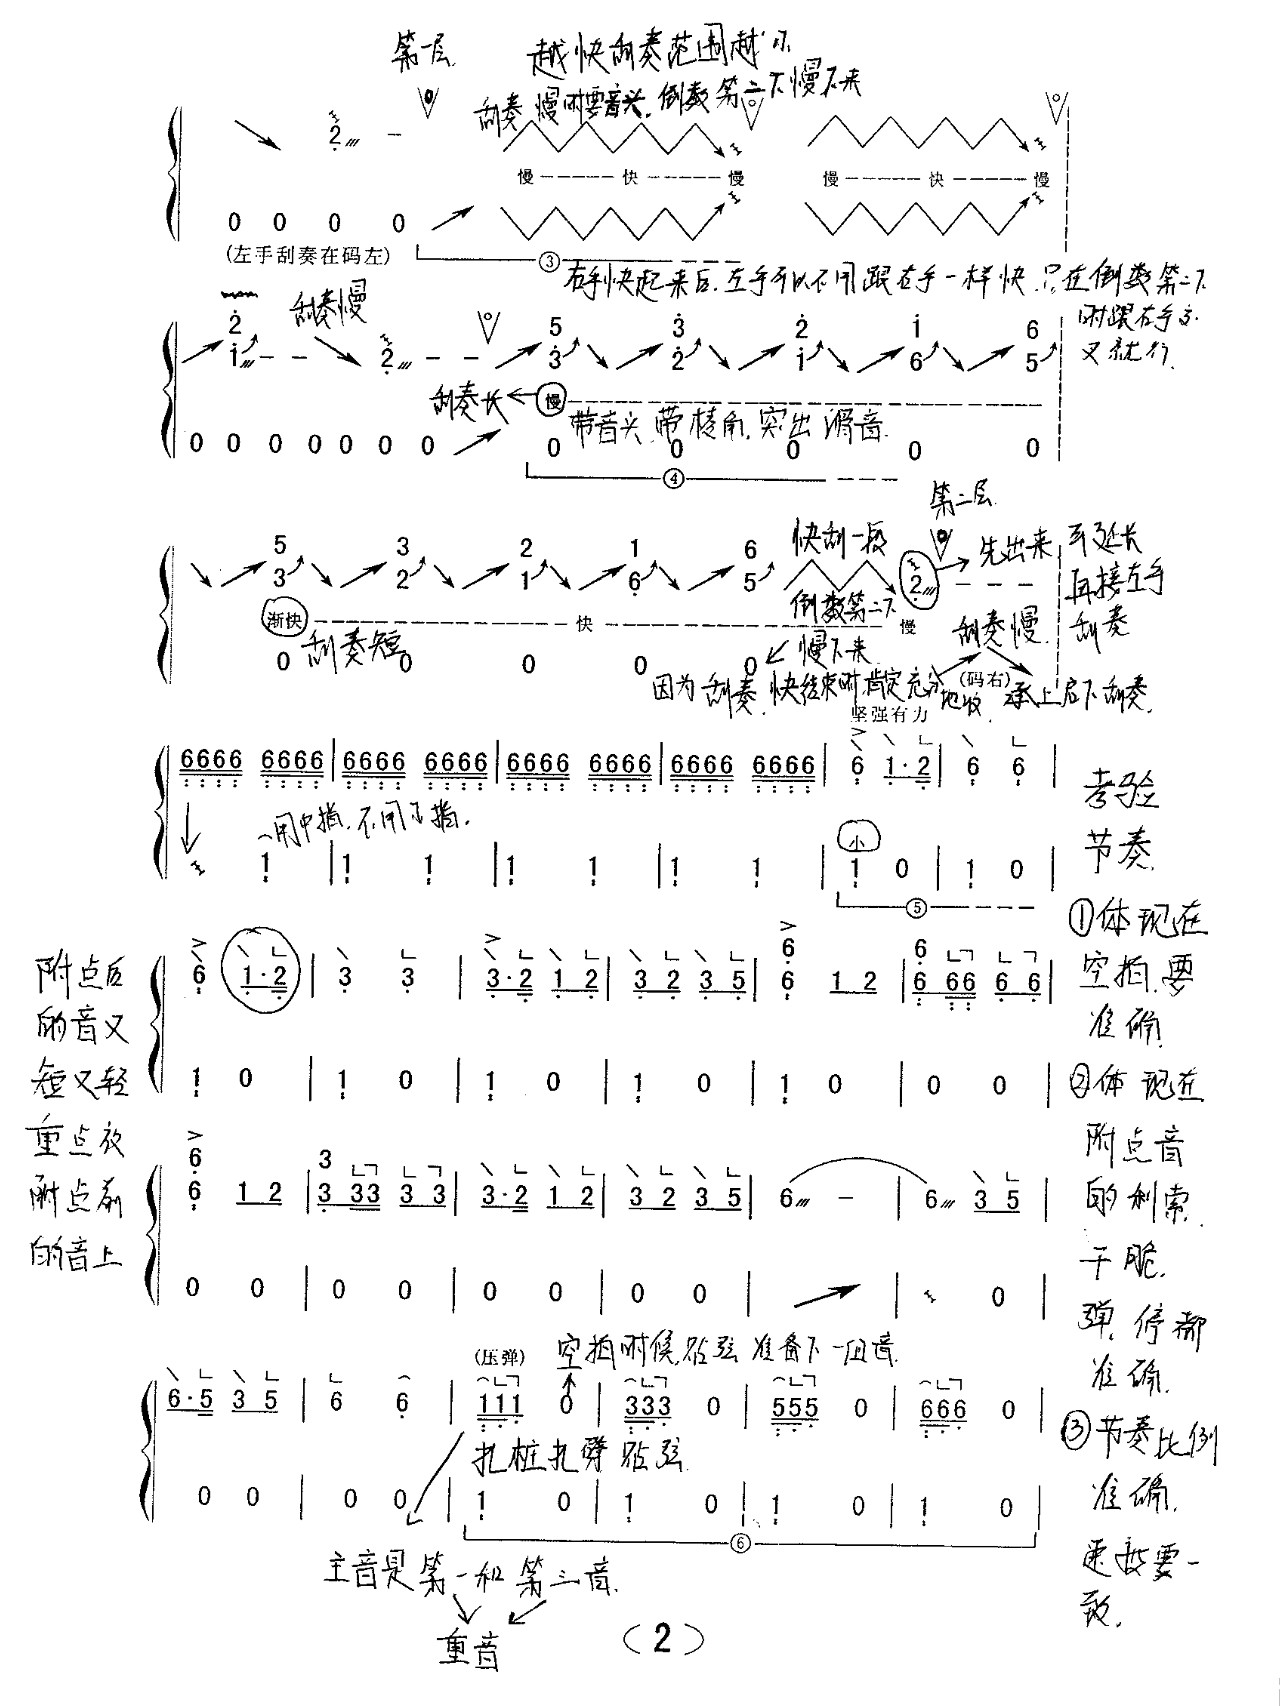 第一层 越快刮奏范围越小
刮奏慢时要音头,倒数第二下慢下来
2 –
慢 快 慢 慢 快 慢
0 0 0 0
(左手刮奏在码左) ③
右手快起来后,左手可以不用跟右手一样快,只在倒数第二下
时跟右手交
叉就行
刮奏慢
2 5 3 2 1 6
1 – – 2 – – 3 2 1 6 5
刮奏长 慢 带音头,带棱角,突出滑音
0 0 0 0 0 0 0 0 0 0 0 0
④
第二层
快刮一段 先出来 再延长
再接左手
刮奏
5 3 2 1 6
3 2 1 6 5 2 – – –
倒数第二下
渐快 快 慢
刮奏短 慢下来 刮奏慢
0 0 0 0 0
因为刮奏快结束时肯定充分地收 (码右) 承上启下刮奏.
坚强有力
6666 6666 | 6666 6666 | 6666 6666 | 6666 6666 | 6 1·2 | 6 6 |
用中指,不用食指.
1 | 1 1 | 1 1 | 1 1 | 1 0 | 1 0 |
小
⑤
考验
节奏.
①体现在
空拍,要
准确.
②体现在
附点音
的利索,
干脆.
弹,停都
准确.
③节奏比例
准确.
速度要一
致.
附点后
的音又
短又轻
重点放
附点前
的音上
6 1·2 | 3 3 | 3·2 1 2 | 3 2 3 5 | 6 1 2 | 6 66 6 6 |
6 6
1 0 | 1 0 | 1 0 | 1 0 | 1 0 | 0 0 |
6 3
6 1 2 | 3 33 3 3 | 3·2 1 2 | 3 2 3 5 | 6 – | 6 3 5 |
0 0 | 0 0 | 0 0 | 0 0 | | 0 |
(压弹) 空拍时候,贴弦准备下一组音
6·5 3 5 | 6 6 | 111 0 | 333 0 | 555 0 | 666 0
扎桩扎臂贴弦
0 0 | 0 0 | 1 0 | 1 0 | 1 0 | 1 0 |
⑥
主音是第一和第三音.
重音
(2)